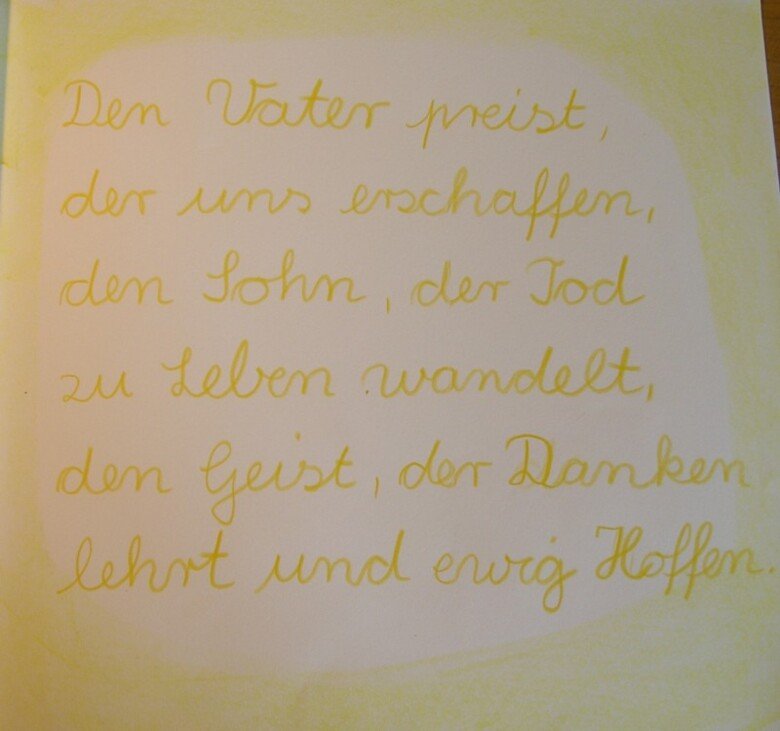 Den Vater preist,
der uns erschaffen,
den Sohn, der Tod
zu Leben wandelt,
den Geist, der Danken
lehrt und ewig Hoffen.